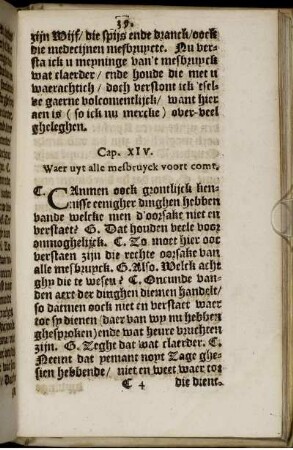 39.
zijn Wijf/ die spijs ende dranck/ oock
die medecijnen mesbruyckte. Nu ver-
sta ick u meyninge van't mesbruyck
wat claerder/ ende houde die met u
waerachtich/ doch verstont ick 'tsel-
ve gaerne volcomentlijck/ want hier
aen is (so ick nu mercke) over-veel
ghelegen.
Cap. XIV.
Waer uyt alle mesbruyck voort comt.
C. CAnmen oock grontlijck ken-
nisse eenigher dinghen hebben
vande welcke men d'oorsake niet en
verstaet? G. Dat houden veele voor
onmoghelijck. C. Zo moet hier oock
verstaen zijn die rechte oorsake van
alle mesbruyck. G. Also. Welck acht
ghy die te wesen? C. Oncunde van-
den aert der dinghen diemen handelt/
so darmen oock niet en verstaet waer
toe sy dienen (daer van wy nu hebben
ghesproken) ende wat heure vruchten
zijn. G. Seght dat wat claerder. C.
Neemt dat yemant noyt Zage ghe-
sien hebbende/ niet en weet waer toe
C 4 die dient.